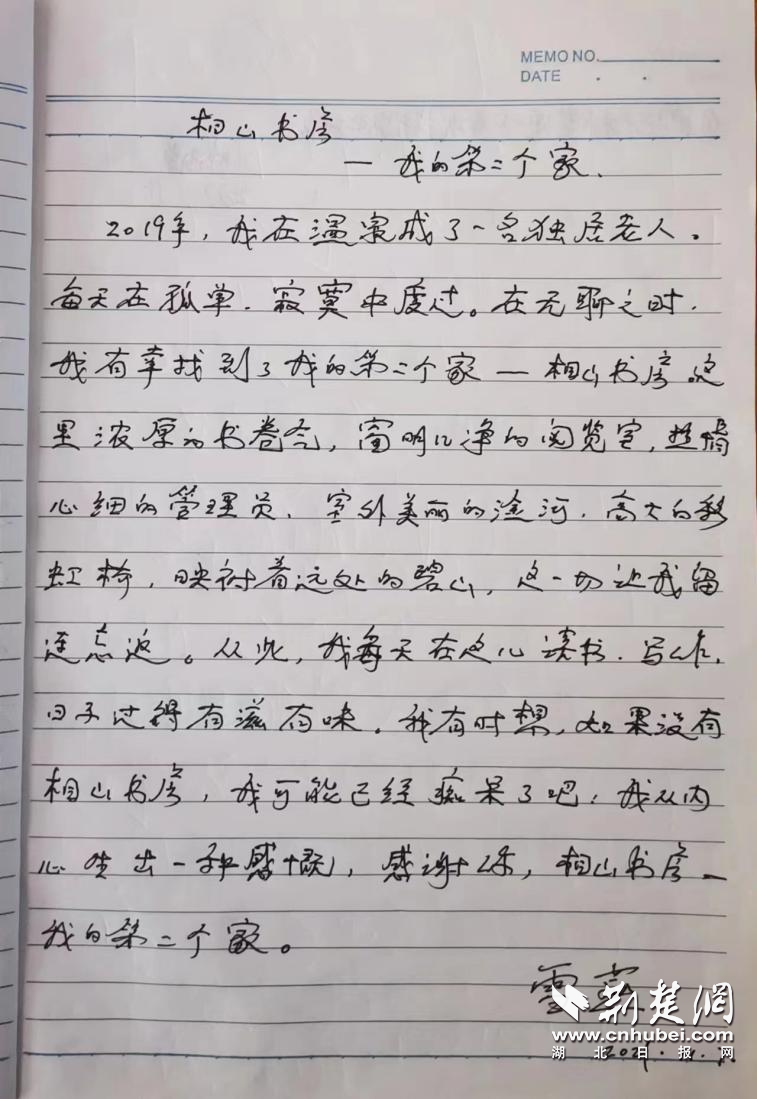 MEMO NO.
DATE . .
相山书房
— 我的第二个家.
2019年，我在温泉成了一名独居老人。
每天在孤单.寂寞中度过。在无聊之时.
我有幸找到了我的第二个家—相山书房.这
里浓厚的书卷气，窗明几净的阅览室，热情
心细的管理员、室外美丽的淦河.高大的彩
虹桥，映衬着远处的碧山，这一切让我留
连忘返。从此，我每天在这儿读书.写作，
日子过得有滋有味。我有时想，如果没有
相山书房，我可能已经痴呆了吧，我从内
心生出一种感慨，感谢你，相山书房—
我的第二个家。
荆楚網
www.cnhubei.com
湖北日报网